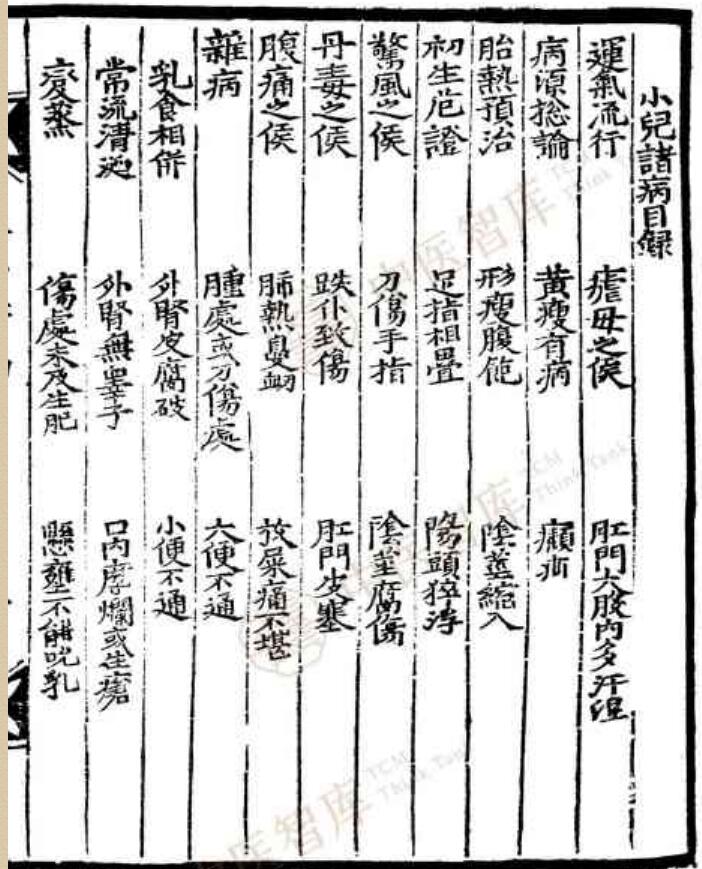 小兒諸病目録
運氣流行 瘧母之候 肛門大股內多汗溼
病源總論 黃瘦有病 癩疝
胎熱預治 形瘦腹飽 陰莖縮入
初生危證 足指相疊 陽頭猝浮
驚風之候 刀傷手指 陰莖腐傷
丹毒之候 跌仆致傷 肛門皮塞
腹痛之候 肺熱鼻衂 放屎痛不堪
雜病 腫處或刀傷處 大便不通
乳食相併 外腎皮腐破 小便不通
常流清涎 外腎無睾子 口內腐爛或生瘡
變蒸 傷處未及生肥 懸壅不能吮乳
中医智库
TCM
Think Tank